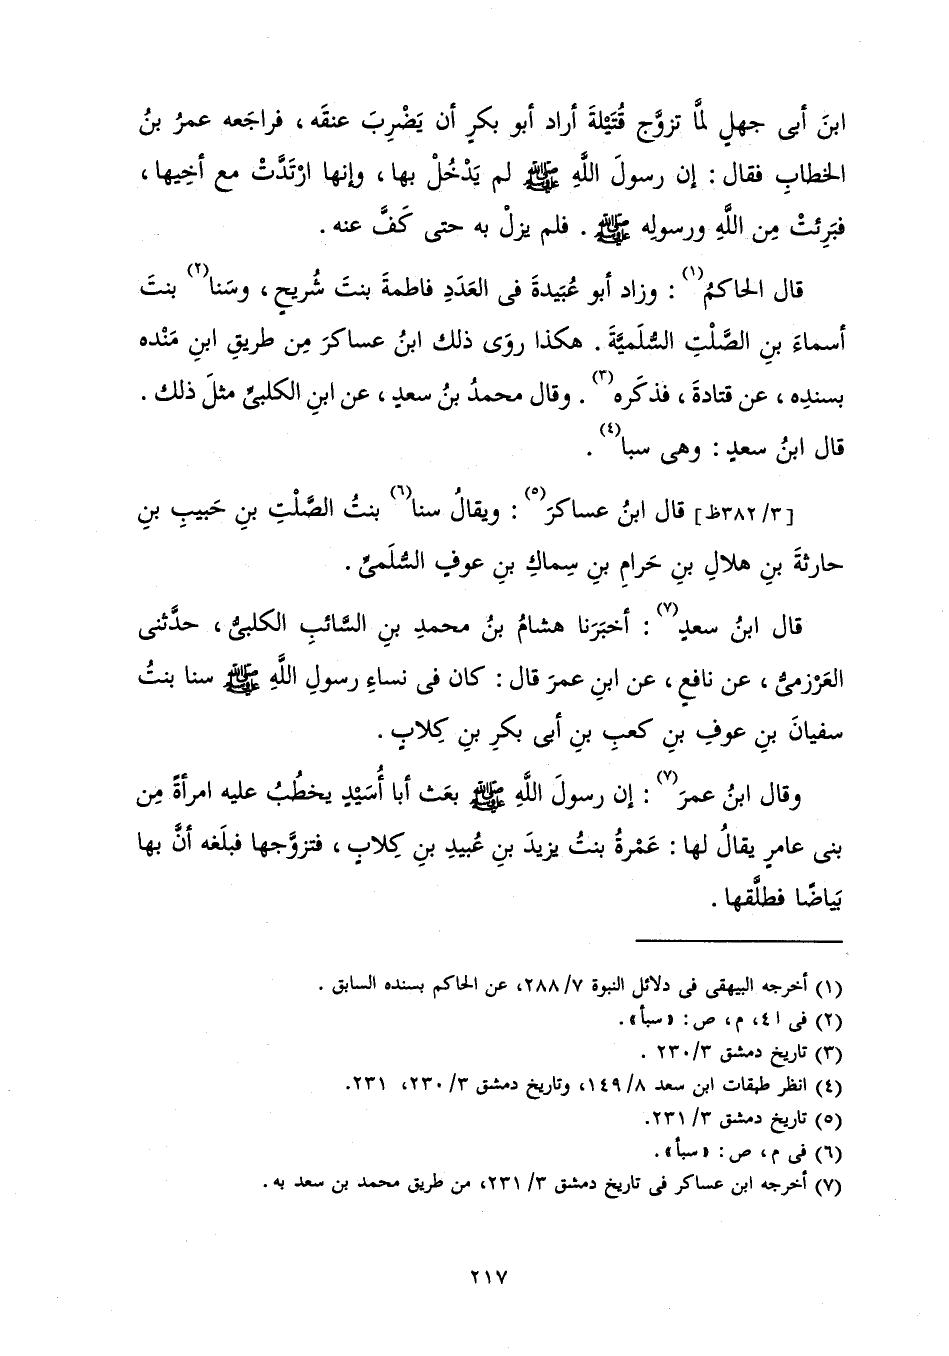 ابنَ أبى جهلٍ لمَّا تزوَّج قُتَيْلةَ أراد أبو بكرٍ أن يَضْرِبَ عنقَه ، فراجَعه عمرُ بنُ
الخطابِ فقال : إن رسولَ اللَّهِ ﷺ لم يَدْخُلْ بها ، وإنها ارْتَدَّتْ مع أخِيها ،
فبَرِئتْ مِن اللَّهِ ورسولِه ﷺ . فلم يزلْ به حتى كَفَّ عنه .
قال الحاكمُ(١) : وزاد أبو عُبَيدةَ فى العَدَدِ فاطمةَ بنتَ شُريحٍ ، وسَنا(٢) بنتَ
أسماءَ بنِ الصَّلْتِ السُّلَميَّةَ . هكذا روَى ذلك ابنُ عساكرَ مِن طريقِ ابنِ مَنْده
بسندِه ، عن قتادةَ ، فذكَره(٣) . وقال محمدُ بنُ سعدٍ ، عن ابنِ الكلبيِّ مثلَ ذلك .
قال ابنُ سعدٍ : وهى سبا(٤) .
[٣٨٢/٣ظ] قال ابنُ عساكرَ(٥) : ويقالُ سنا(٦) بنتُ الصَّلْتِ بنِ حَبيبِ بنِ
حارثةَ بنِ هلالِ بنِ حَرامِ بنِ سِماكِ بنِ عوفٍ السُّلَمىِّ .
قال ابنُ سعدٍ(٧) : أخبَرَنا هشامُ بنُ محمدِ بنِ السَّائبِ الكلبىُّ ، حدَّثنى
العَرْزمىُّ ، عن نافعٍ ، عن ابنِ عمرَ قال : كان فى نساءِ رسولِ اللَّهِ ﷺ سنا بنتُ
سفيانَ بنِ عوفِ بنِ كعبِ بنِ أبى بكرِ بنِ كِلابٍ .
وقال ابنُ عمرَ(٧) : إن رسولَ اللَّهِ ﷺ بعَث أبا أُسَيْدٍ يخطُبُ عليه امرأةً مِن
بنى عامرٍ يقالُ لها : عَمْرةُ بنتُ يزيدَ بنِ عُبيدِ بنِ كِلابٍ ، فتزوَّجها فبلَغه أنَّ بها
بَياضًا فطلَّقها .
(١) أخرجه البيهقى فى دلائل النبوة ٢٨٨/٧، عن الحاكم بسنده السابق .
(٢) فى ا ٤، م، ص: «سبأ».
(٣) تاريخ دمشق ٢٣٠/٣ .
(٤) انظر طبقات ابن سعد ١٤٩/٨، وتاريخ دمشق ٢٣٠/٣، ٢٣١.
(٥) تاريخ دمشق ٢٣١/٣.
(٦) فى م، ص: «سبأ».
(٧) أخرجه ابن عساكر فى تاريخ دمشق ٢٣١/٣، من طريق محمد بن سعد به .
٢١٧